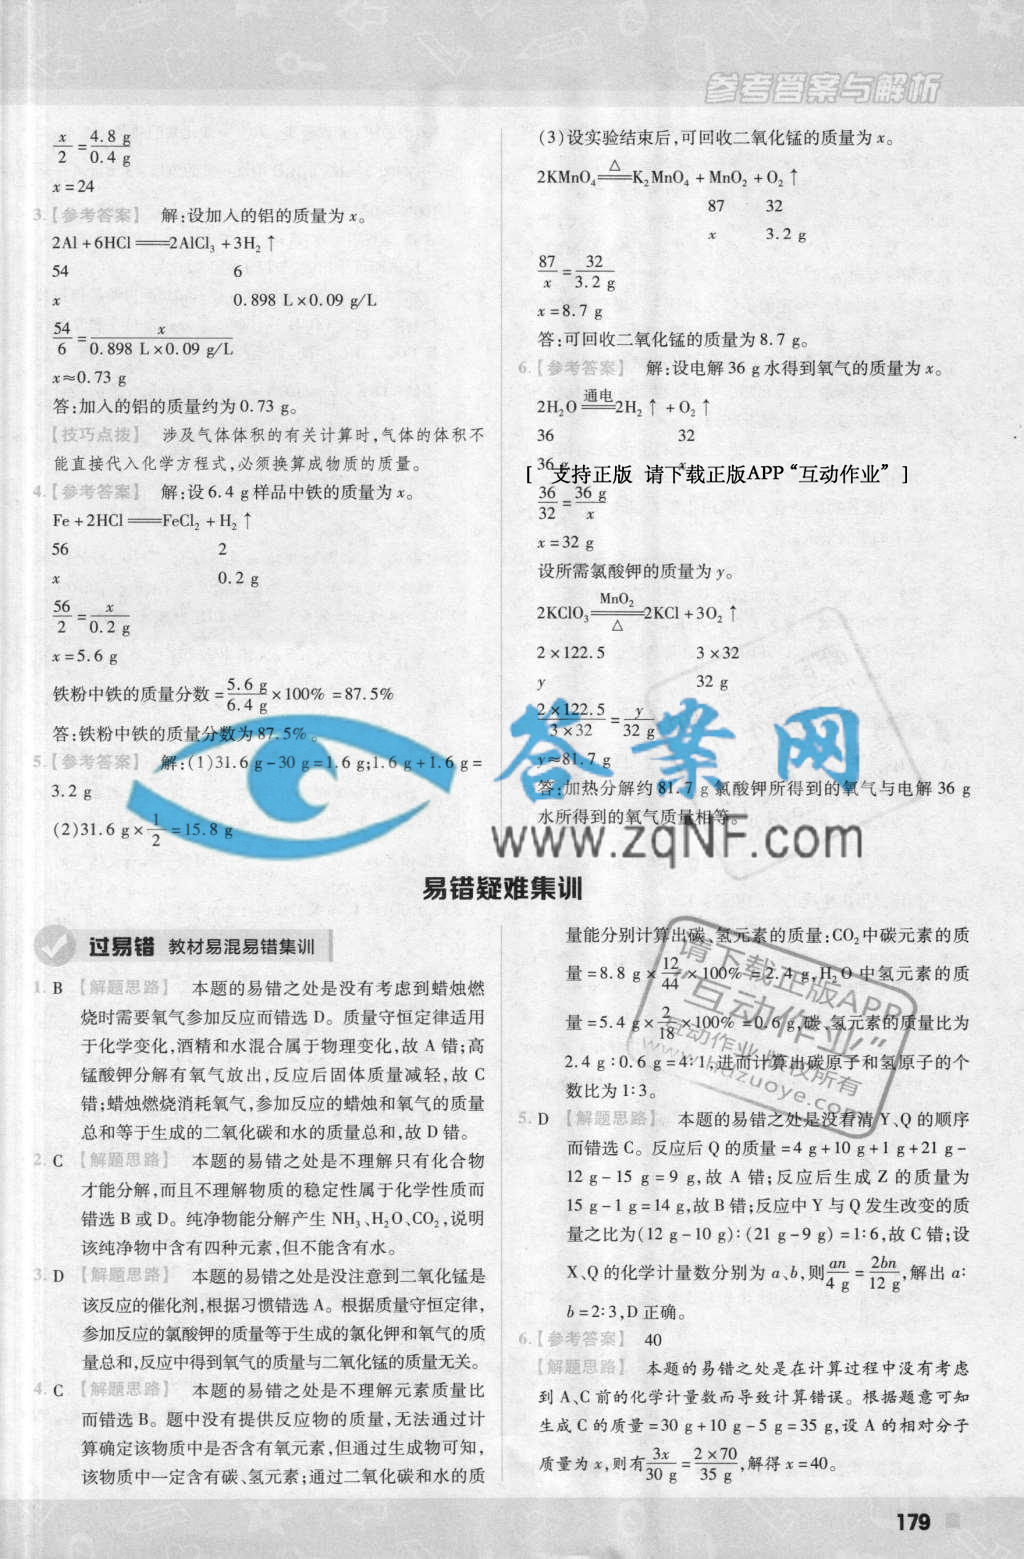 参考答案与解析
x/2 = 4.8 g/0.4 g
x = 24
3.【参考答案】 解:设加入的铝的质量为 x。
2Al + 6HCl ══ 2AlCl₃ + 3H₂↑
54 6
x 0.898 L × 0.09 g/L
54/6 = x/(0.898 L × 0.09 g/L)
x ≈ 0.73 g
答:加入的铝的质量约为 0.73 g。
【技巧点拨】 涉及气体体积的有关计算时,气体的体积不
能直接代入化学方程式,必须换算成物质的质量。
4.【参考答案】 解:设 6.4 g 样品中铁的质量为 x。
Fe + 2HCl ══ FeCl₂ + H₂↑
56 2
x 0.2 g
56/2 = x/0.2 g
x = 5.6 g
铁粉中铁的质量分数 = 5.6 g/6.4 g × 100% = 87.5%
答:铁粉中铁的质量分数为 87.5%。
5.【参考答案】 解:(1)31.6 g - 30 g = 1.6 g;1.6 g + 1.6 g =
3.2 g
(2)31.6 g × 1/2 = 15.8 g
(3)设实验结束后,可回收二氧化锰的质量为 x。
2KMnO₄ ══△══ K₂MnO₄ + MnO₂ + O₂↑
87 32
x 3.2 g
87/x = 32/3.2 g
x = 8.7 g
答:可回收二氧化锰的质量为 8.7 g。
6.【参考答案】 解:设电解 36 g 水得到氧气的质量为 x。
2H₂O ══通电══ 2H₂↑ + O₂↑
36 32
36 g x
[ 支持正版 请下载正版APP“互动作业” ]
36/32 = 36 g/x
x = 32 g
设所需氯酸钾的质量为 y。
2KClO₃ ══MnO₂/△══ 2KCl + 3O₂↑
2 × 122.5 3 × 32
y 32 g
2 × 122.5/3 × 32 = y/32 g
y ≈ 81.7 g
答:加热分解约 81.7 g 氯酸钾所得到的氧气与电解 36 g
水所得到的氧气质量相等。
答案网
www.zqNF.com
易错疑难集训
过易错 教材易混易错集训
1. B 【解题思路】 本题的易错之处是没有考虑到蜡烛燃
烧时需要氧气参加反应而错选 D。质量守恒定律适用
于化学变化,酒精和水混合属于物理变化,故 A 错;高
锰酸钾分解有氧气放出,反应后固体质量减轻,故 C
错;蜡烛燃烧消耗氧气,参加反应的蜡烛和氧气的质量
总和等于生成的二氧化碳和水的质量总和,故 D 错。
2. C 【解题思路】 本题的易错之处是不理解只有化合物
才能分解,而且不理解物质的稳定性属于化学性质而
错选 B 或 D。纯净物能分解产生 NH₃、H₂O、CO₂,说明
该纯净物中含有四种元素,但不能含有水。
3. D 【解题思路】 本题的易错之处是没注意到二氧化锰是
该反应的催化剂,根据习惯错选 A。根据质量守恒定律,
参加反应的氯酸钾的质量等于生成的氯化钾和氧气的质
量总和,反应中得到氧气的质量与二氧化锰的质量无关。
4. C 【解题思路】 本题的易错之处是不理解元素质量比
而错选 B。题中没有提供反应物的质量,无法通过计
算确定该物质中是否含有氧元素,但通过生成物可知,
该物质中一定含有碳、氢元素;通过二氧化碳和水的质
量能分别计算出碳、氢元素的质量:CO₂ 中碳元素的质
量 = 8.8 g × 12/44 × 100% = 2.4 g,H₂O 中氢元素的质
量 = 5.4 g × 2/18 × 100% = 0.6 g,碳、氢元素的质量比为
2.4 g∶0.6 g = 4∶1,进而计算出碳原子和氢原子的个
数比为 1∶3。
5. D 【解题思路】 本题的易错之处是没看清 Y、Q 的顺序
而错选 C。反应后 Q 的质量 = 4 g + 10 g + 1 g + 21 g -
12 g - 15 g = 9 g,故 A 错;反应后生成 Z 的质量为
15 g - 1 g = 14 g,故 B 错;反应中 Y 与 Q 发生改变的质
量之比为(12 g - 10 g)∶(21 g - 9 g) = 1∶6,故 C 错;设
X、Q 的化学计量数分别为 a、b,则 an/4 g = 2bn/12 g,解出 a∶
b = 2∶3,D 正确。
6.【参考答案】 40
【解题思路】 本题的易错之处是在计算过程中没有考虑
到 A、C 前的化学计量数而导致计算错误。根据题意可知
生成 C 的质量 = 30 g + 10 g - 5 g = 35 g,设 A 的相对分子
质量为 x,则有 3x/30 g = 2 × 70/35 g,解得 x = 40。
请下载正版APP
“互动作业”
互动作业 版权所有
179